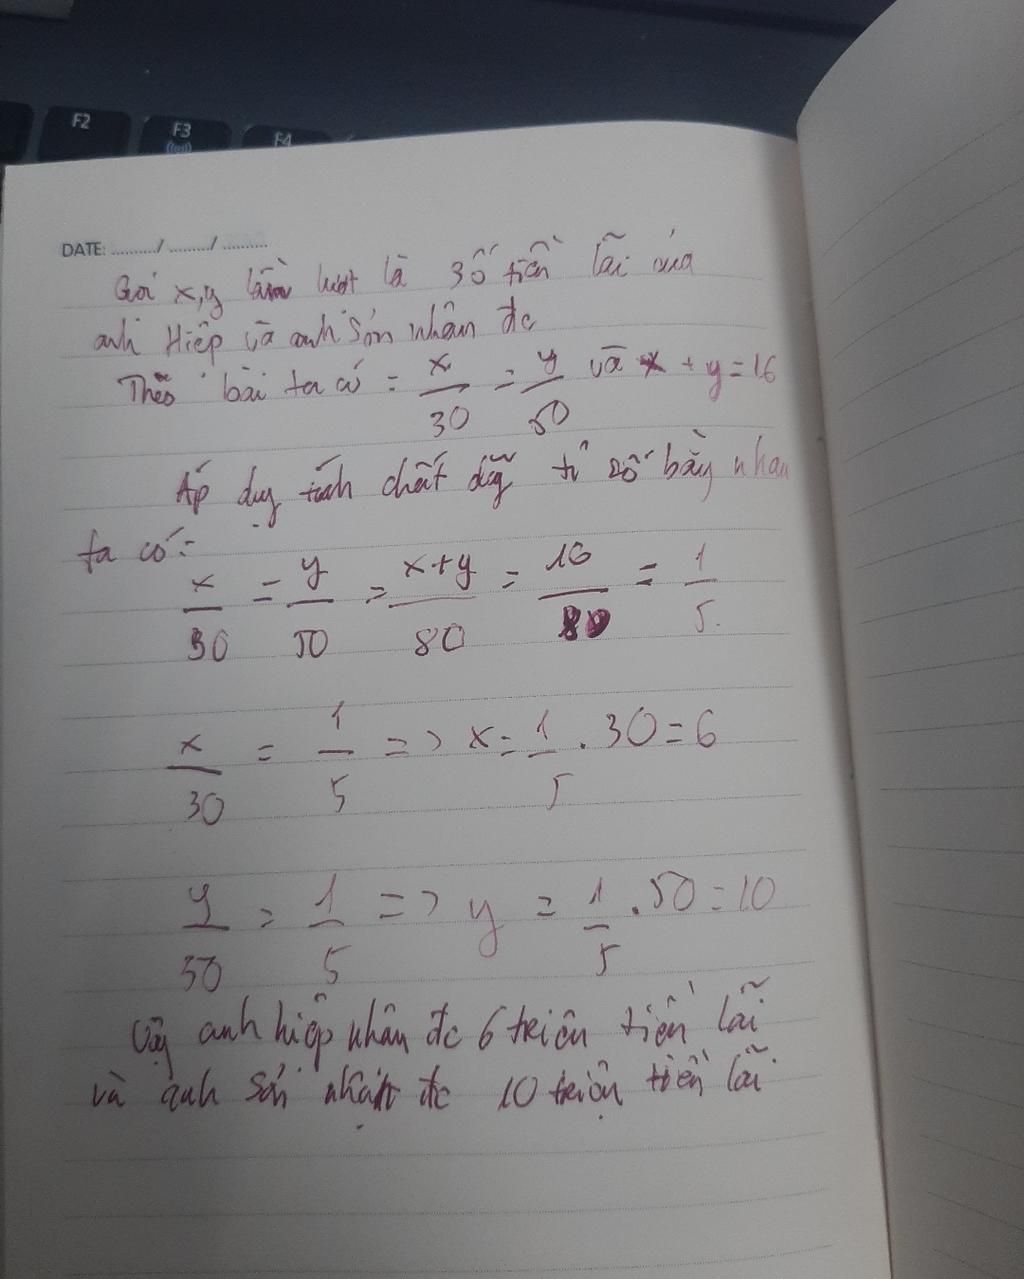 F2
F3
F4
DATE: ......../ ......../ .........
Gọi x, y lần lượt là số tiền lãi của
anh Hiệp và anh Sơn nhân đc
Theo bài ta có : x/30 = y/50 và x + y = 16
Áp dụg tính chất dãy tỉ số bằg nhau
ta có:
x/30 = y/50 = x+y/80 = 16/80 = 1/5.
x/30 = 1/5 => x = 1/5 . 30 = 6
y/50 = 1/5 => y = 1/5 . 50 = 10
Vậy anh hiệp nhân đc 6 triệu tiền lãi
và anh Sơn nhận đc 10 triệu tiền lãi